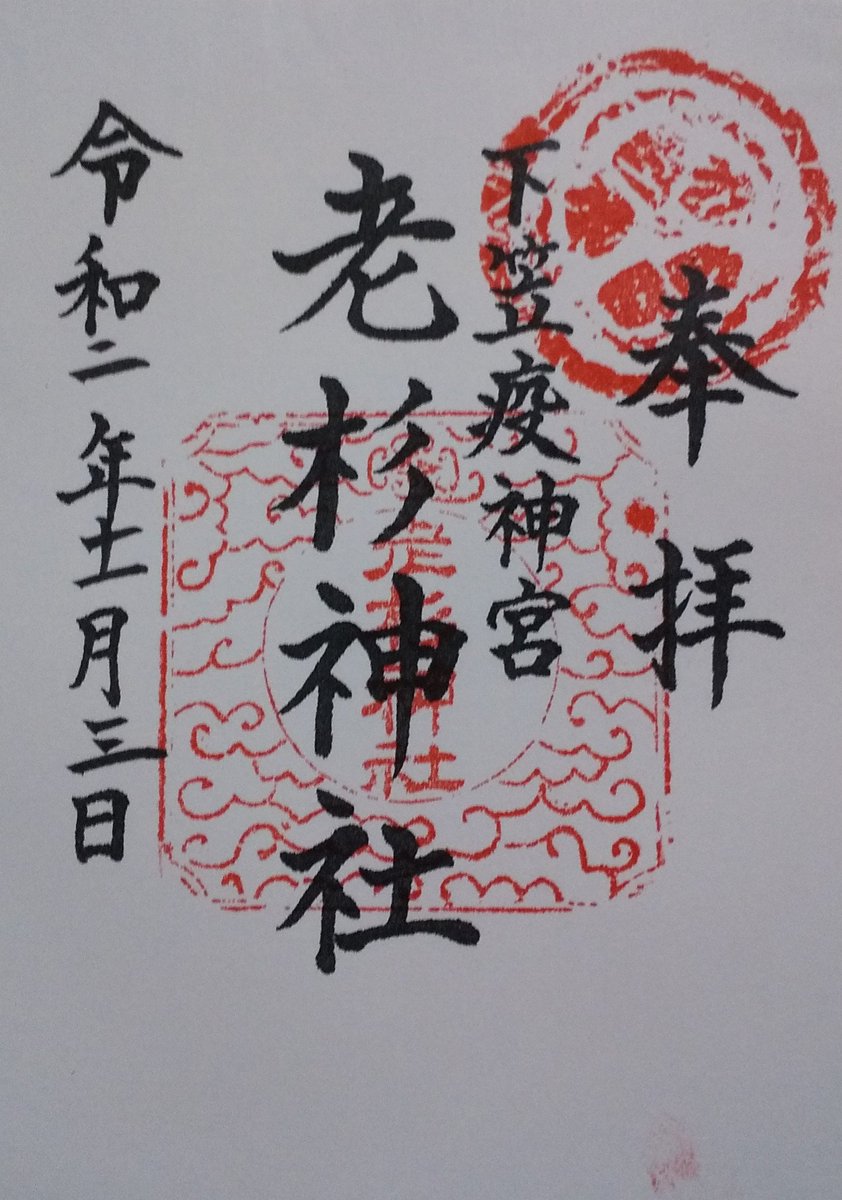 奉拝
下笠疫神宮
老杉神社
老杉神社
令和二年十一月三日